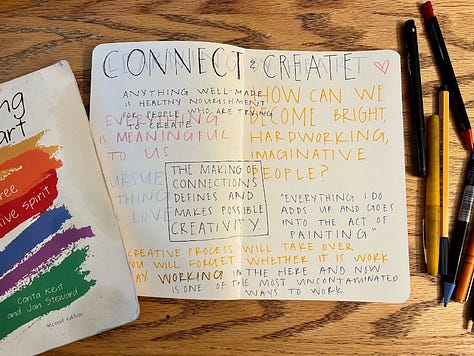 ng
art
ree
tive Spirit
Corita Kent
and Jan Steward
second edition
CONNECT & CREATE
ANYTHING WELL-MADE
IS HEALTHY NOURISHMENT
FOR PEOPLE WHO ARE TRYING
TO CREATE
EVERYTHING
IS MEANINGFUL
TO US
PURSUE
THING
LOVE
HOW CAN WE
BECOME BRIGHT,
HARDWORKING,
IMAGINATIVE
PEOPLE?
THE MAKING OF
CONNECTIONS
DEFINES AND
MAKES POSSIBLE
CREATIVITY
"EVERYTHING I DO
ADDS UP AND GOES
INTO THE ACT OF
PAINTING"
CREATIVE PROCESS WILL TAKE OVER
YOU WILL FORGET WHETHER IT IS WORK
WORKING IN THE HERE AND NOW
IS ONE OF THE MOST UNCONTAMINATED
WAYS TO WORK